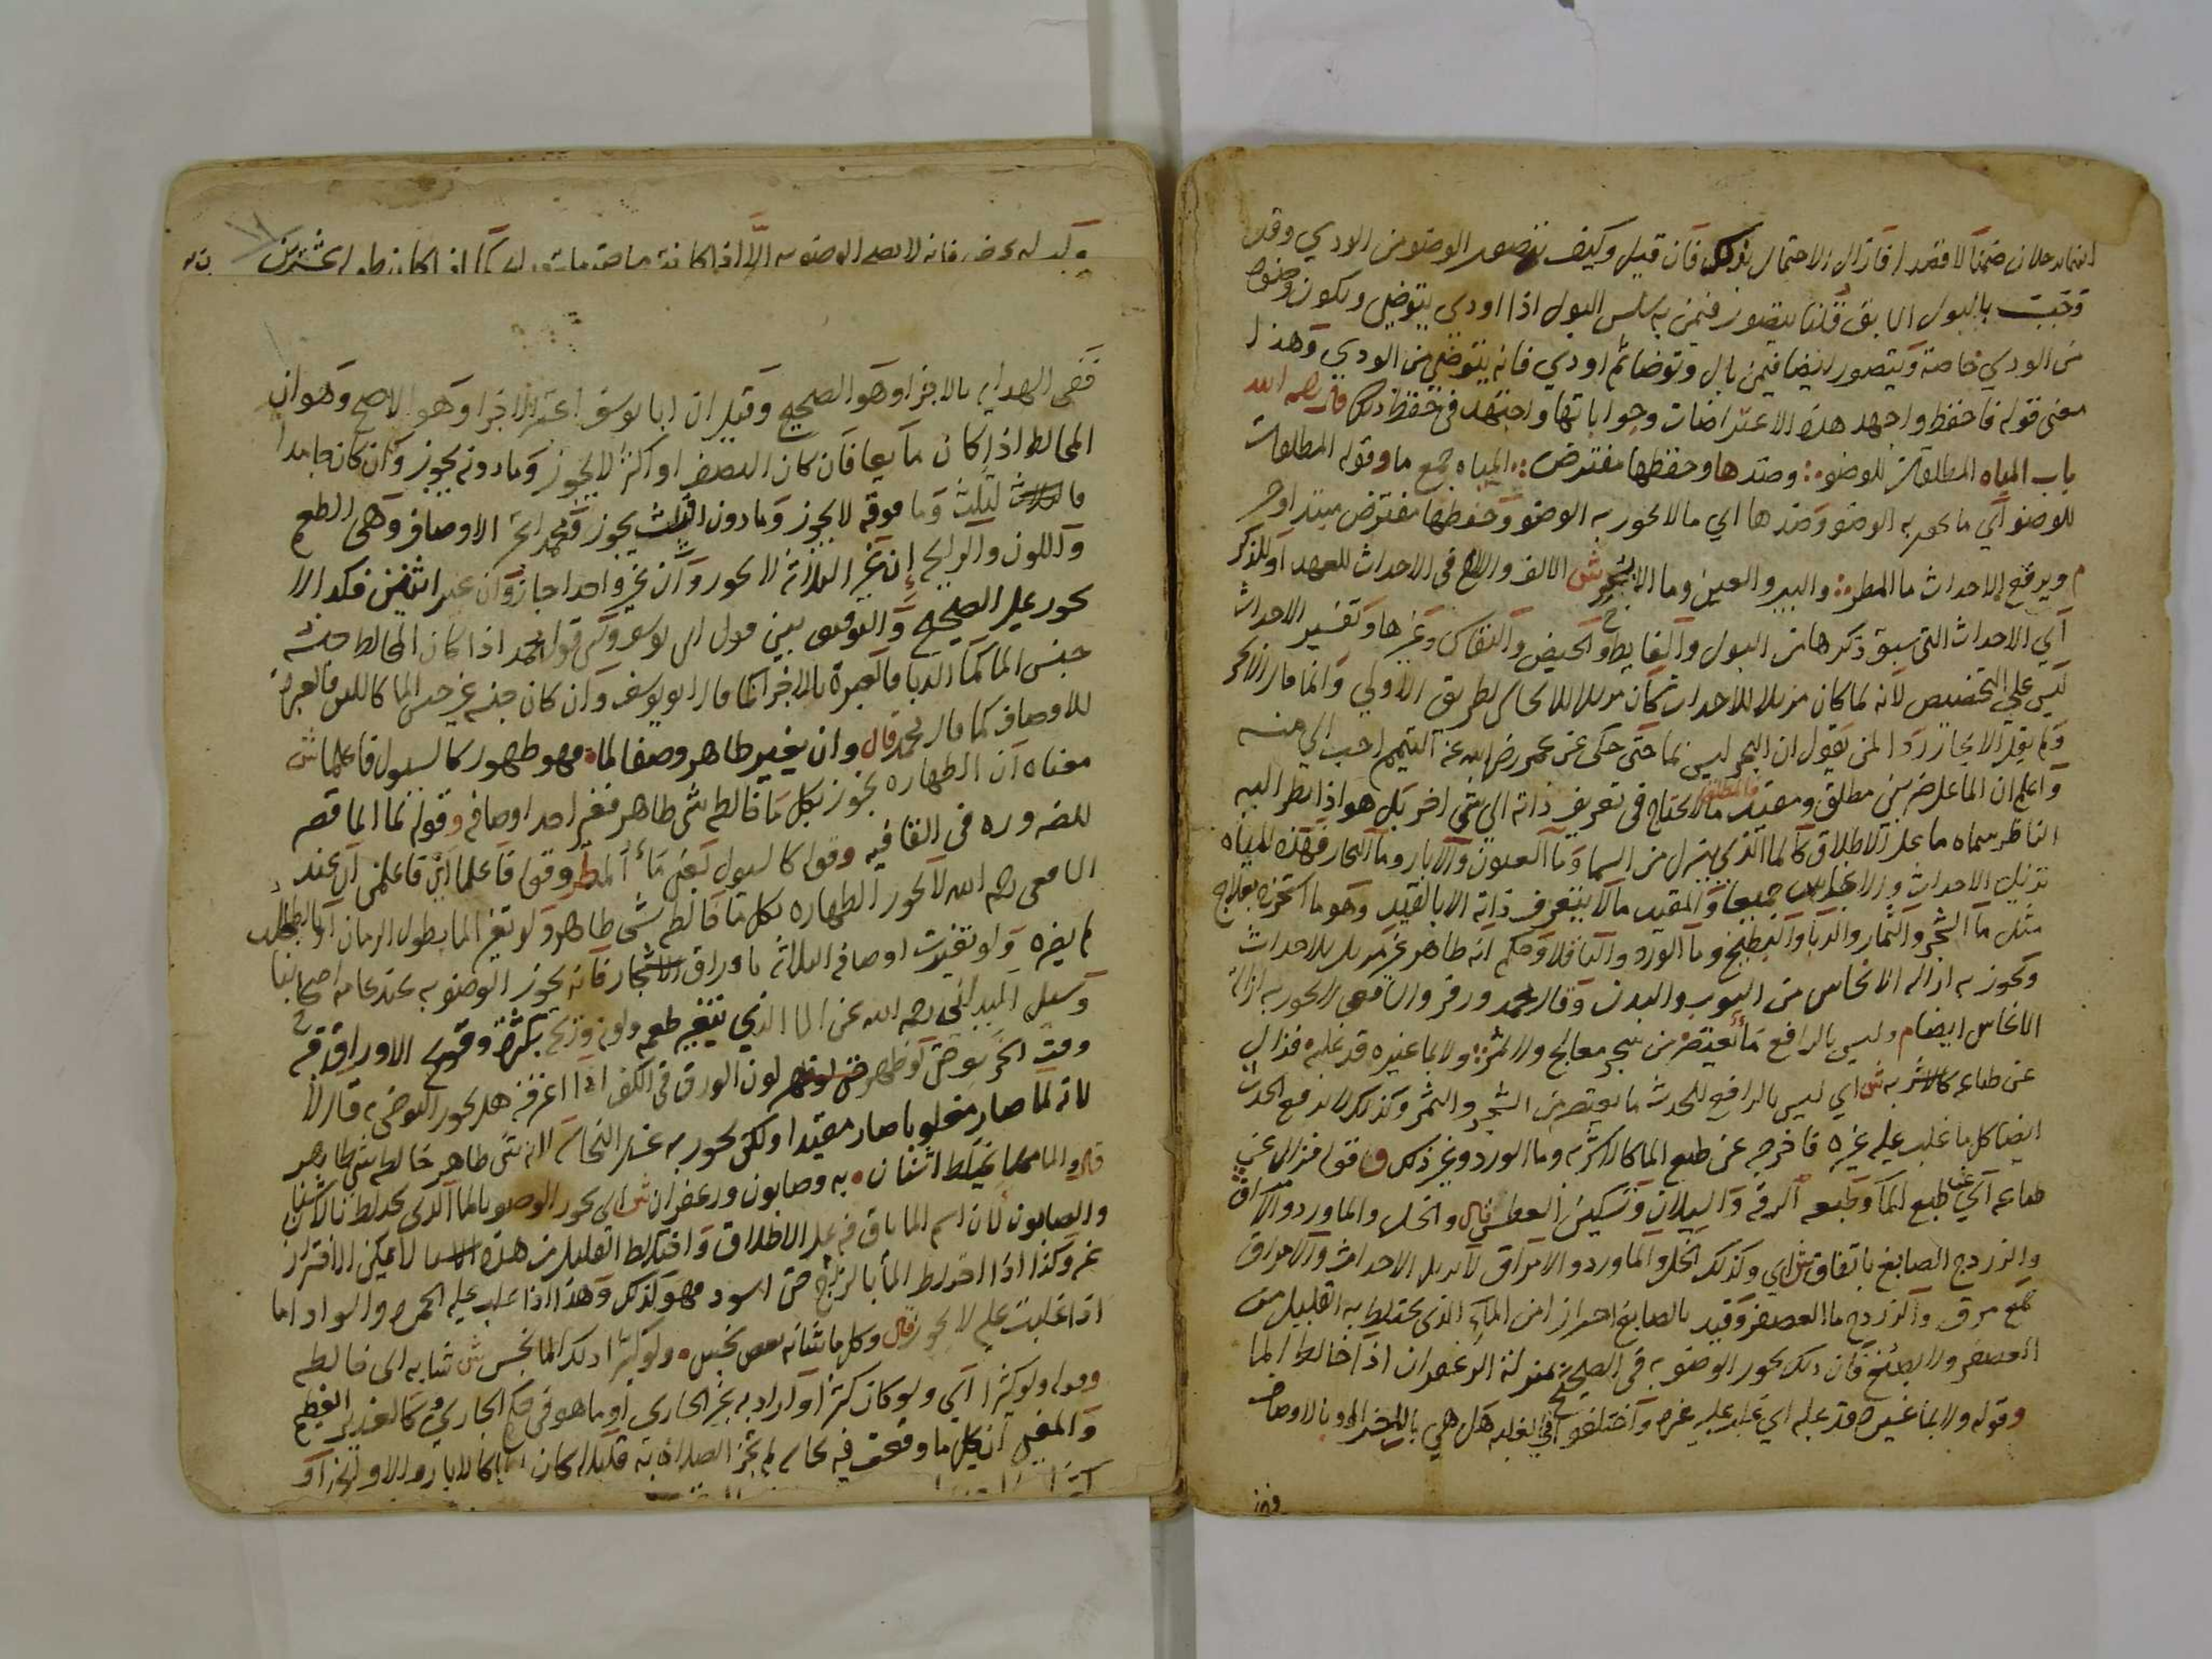 انما يدخلان ضمنا لا قصدا فازال الاحتمال بذلك فان قيل وكيف يتصور الوضو من الودي وقد
وجبت بالبول السابق قلنا يتصور فيمن به سلس البول اذا اودي يتوضى ويكون وضوه
من الودي خاصة ويتصور ايضا فيمن بال وتوضا ثم اودي فانه يتوضى من الودي وهذا
معنى قوله فاحفظ واجهد هذه الاعتراضات وجواباتها واجتهد في حفظ ذلك قال رحمه الله
باب المياه المطلقات للوضو وضدها وحفظها مفترض المياه جمع ما وقوله المطلقات
للوضو اي ما يجوز به الوضو وضدها اي ما لا يجوز به الوضو وحفظها مفترض مبتدا وخبر
م ويرفع الاحداث ما المطر والبير والعين وما الابحر ش الالف واللام في الاحداث للعهد او للذكر
اي الاحداث التي سبق ذكرها من البول والغايط والحيض والنفاس وغيرها وتفسير الاحداث
ليس على التخصيص لانه لما كان مزيلا للاحداث كان مزيلا للانجاس بطريق الاولى وانما قال الابحر
ولم يقل الانهار ردا لمن يقول ان البحر ليس بما حتى حكى عن عمر رضي الله عنه التيمم احب الي منه
واعلم ان الما على ضربين مطلق ومقيد فالمطلق ما لا يحتاج في تعريف ذاته الى شي اخر بل هو اذا نظر اليه
الناظر سماه ما على الاطلاق كالما الذي ينزل من السما وما العيون والابار وما البحار فهذه المياه
تزيل الاحداث والانجاس جميعا والمقيد ما لا يتعرف ذاته الا بالقيد وهو ما استخرج بعلاج
مثل ما الشجر والثمار والدبا والبطيخ وما الورد والباقلا وحكمه انه طاهر غير مزيل للاحداث
ويجوز به ازالة الانجاس من الثوب والبدن وقال محمد وزفر والشافعي لا يجوز به ازالة
الانجاس ايضا م وليس بالرافع ما يعتصر من شجر معالج ولا ثمر ولا بما غيره قد غلبه فزال
عن طباعه كالاشربه ش اي ليس بالرافع للحدث ما يعتصر من الشجر والثمر وكذلك لا يرفع الحدث
ايضا كل ما غلب عليه غيره فاخرجه عن طبع الما كالاشربه وما الورد وغير ذلك وقوله فزال عن
طباعه اي عن طبع الما وطبعه الرقة والسيلان وتسكين العطش قال والخل والما ورد والامراق
والزردج الصابغ باتفاق ش اي وكذلك الخل والما ورد والامراق لا تزيل الاحداث والامراق
جمع مرق والزردج ما العصفر وقيد بالصابغ احترازا من الماء الذي يختلط به القليل من
العصفر ولا يصبغ فان ذلك يجوز الوضو به في الصحيح بمنزلة الزعفران اذا خالط الما
وقوله ولا بما غيره قد غلبه اي غلب عليه غيره واختلفوا في الغلبه هل هي بالاجزا او بالاوصاف
ففي
ففي الهدايه بالاجزا وهو الصحيح وقيل ان ابا يوسف اعتبر الاجزا وهو الاصح وهو ان
المخالط اذا كان مايعا فان كان النصف او اكثر لا يجوز وما دونه يجوز وان كان جامدا
فالثلث وما فوقه لا يجوز وما دون الثلث يجوز ومحمد اعتبر الاوصاف وهي الطعم
واللون والرايحه ان غير الثلاثة لا يجوز وان غير واحدا جاز وان غير اثنين فكذا لا
يجوز على الصحيح والتوفيق بين قول ابي يوسف وبين قول محمد اذا كان المخالط جنسه
جنس الما كما الدبا فالعبرة بالاجزا كما قال ابو يوسف وان كان جنسه غير جنس الما كاللبن فالعبرة
للاوصاف كما قال محمد قال وان يغير طاهر وصفا لما فهو طهور كالسيول فاعلما ش
معناه ان الطهاره تجوز بكل ما خالطه شي طاهر فغير احد اوصافه وقوله لما الما قصره
للضروره في القافيه وقوله كالسيول يعني ماء المطر وقوله فاعلما اي فاعلمن اي عند
الشافعي رحمه الله لا يجوز الطهاره بكل ما خالطه شي طاهر ولو تغير الما بطول الزمان او بالطحلب
لم يضره ولو تغيرت اوصافه الثلاثه باوراق الاشجار فانه يجوز الوضو به عند عامة اصحابنا
وسيل الميداني رحمه الله عن الما الذي يتغير طعمه ولونه وريحه بكثرة وقوع الاوراق فيه
وقت الخريف حتى لو ظهر لون الورق في الكف اذا اغرفه هل يجوز التوضي به قال لا
لانه لما صار مغلوبا صار مقيدا ولكن يجوز به غسل النجاسة لانه شي طاهر خالطه شي طاهر
قال والما مما يختلط اشنان به وصابون وزعفران ش اي يجوز الوضو بالما الذي يختلط بالاشنان
والصابون لان اسم الما باق فيه على الاطلاق واختلاط القليل من هذه لا يمكن الاحتراز
عنه وكذا اذا اختلط الما بالزاج حتى اسود فهو كذلك وهذا اذا غلب عليه الحمره والسواد اما
اذا غلبت عليه لا يجوز قال وكل ما شابه بعض نجس ولو كثيرا ذلك الما نجس ش شابه اي خالطه
وقوله ولو كثيرا اي ولو كان كثيرا واراد به غير الجاري او ما هو في حكم الجاري كالغدير العظيم
والمعنى ان كل ما وقعت فيه نجاسه لم تجز الصلاة به قليلا كان او كثيرا كالابار والاواني